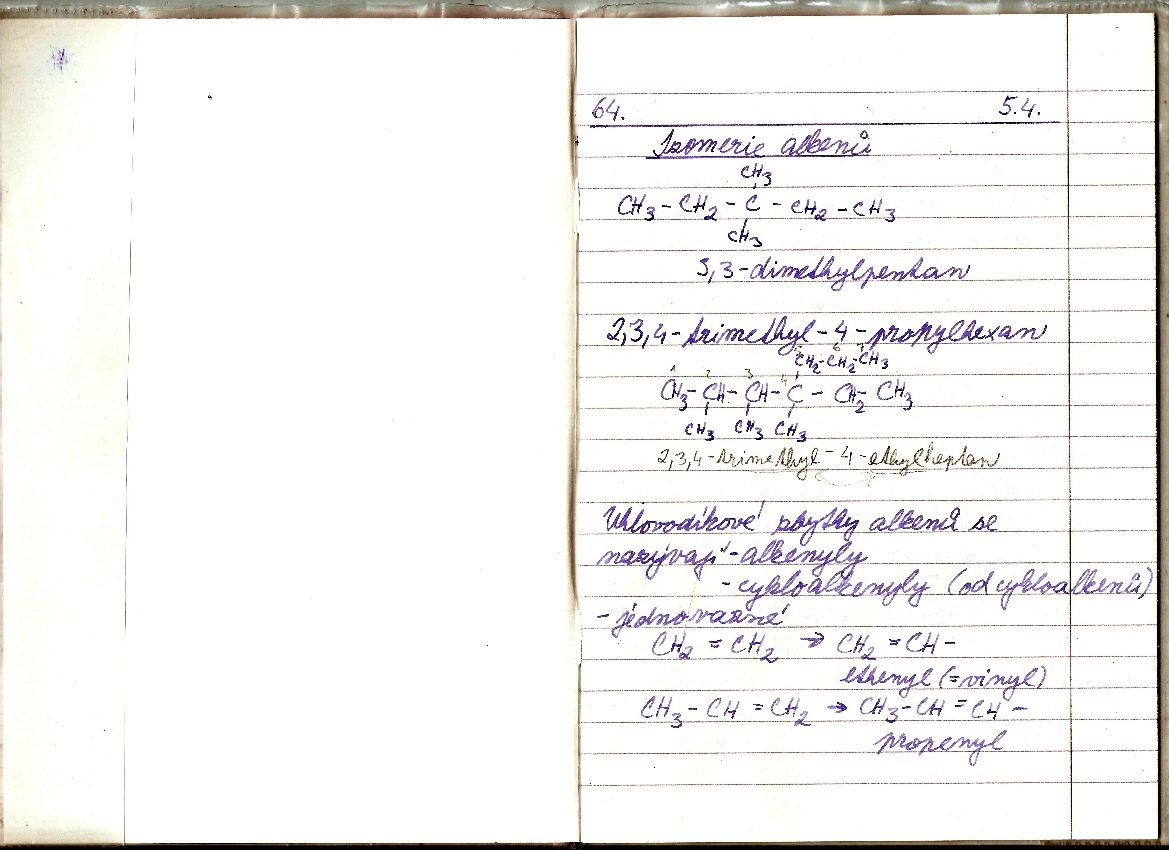 64. 5.4.
Izomerie alkenů
CH3
CH3 - CH2 - C - CH2 - CH3
CH3
3,3-dimethylpentan
2,3,4-trimethyl-4-propylhexan
5 6 7
CH2-CH2-CH3
1 2 3 4
CH3-CH-CH-C - CH2 CH3
CH3 CH3 CH3
2,3,4-trimethyl-4-ethylheptan
Uhlovodíkové zbytky alkenů se
nazývají -alkenyly
-cykloalkenyly (od cykloalkenů)
- jednovazné
CH2 = CH2 → CH2 = CH-
ethenyl (=vinyl)
CH3 - CH = CH2 → CH3-CH = CH-
propenyl